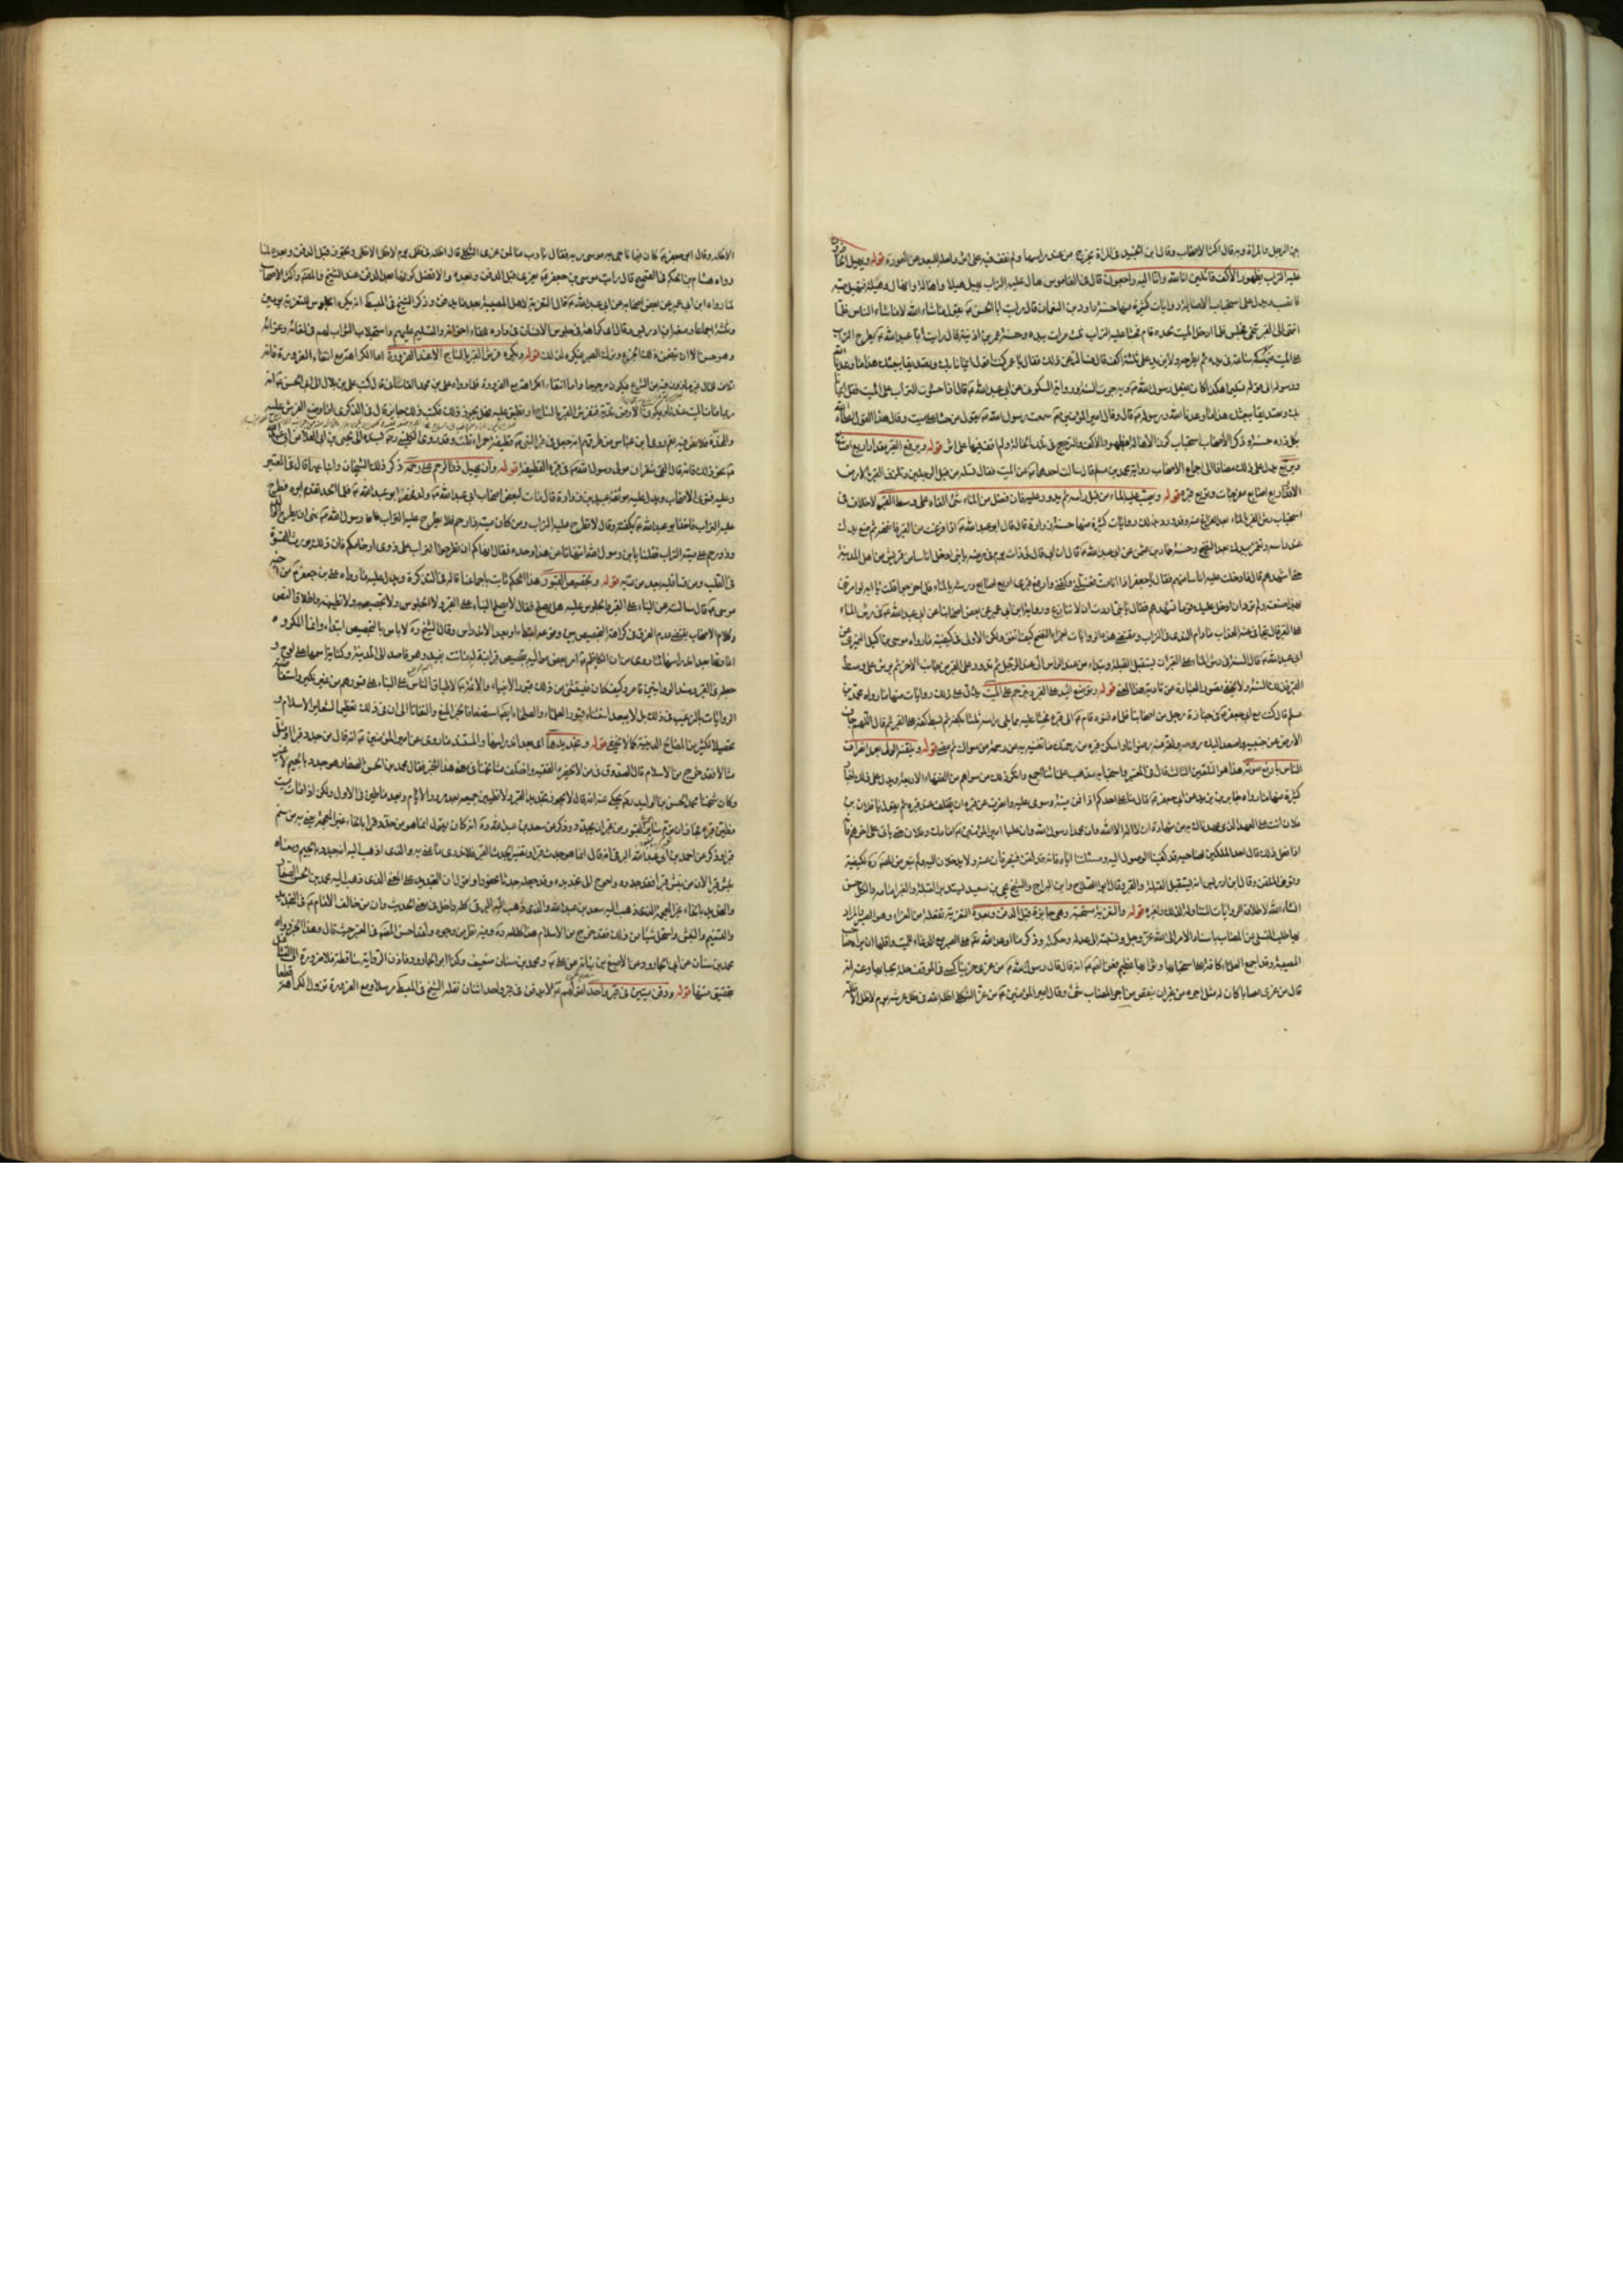 بين الرجل والمراة وبه قال اكثر الاصحاب وقال ابن الجنيد في المراة يخرج من عند راسها ولم نقف فيه على اثر ولعله للبعد عن العورة قوله ويهيل الحاضرون
عليه التراب بظهور الأكف قائلين انا لله وانا اليه راجعون قال في القاموس هال عليه التراب يهيل هيلا واهاله فانهال
فانصب ويدل على استحباب الاهالة روايات كثيرة منها حسنة داود بن النعمان قال رايت ابا الحسن ع يقول ما شاء الله لا ما شاء الناس فلما
انتهى الى القبر تنحى فجلس فلما ادخل الميت لحده قام فحثا عليه التراب ثلث مرات بيده وحسنة عمر بن اذينة قال رايت ابا عبد الله ع يطرح التراب
على الميت فيمسكه ساعة في يده ثم يطرحه ولا يزيد على ثلثة اكف قال فسالته عن ذلك فقال يا عمر كنت اقول ايمانا بك وتصديقا ببعثك هذا ما وعدنا الله
ورسوله الى قوله تسليما هكذا كان يفعل رسول الله ص وبه جرت السنة ورواية السكوني عن ابي عبد الله ع قال اذا حثوت التراب على الميت فقل ايمانا
بك وتصديقا ببعثك هذا ما وعدنا الله ورسوله ص قال وقال امير المؤمنين ع سمعت رسول الله ص يقول من حثا على ميت وقال هذا القول اعطاه الله
بكل ذرة حسنة وذكر الأصحاب استحباب كون الاهالة بظهور الأكف والترجيع في تلك الحالة ولم اقف فيهما على اثر قوله ويرفع القبر مقدار اربع اصابع
ويربع يدل على ذلك مضافا الى اجماع الاصحاب رواية محمد بن مسلم قال سالت احدهما ع عن الميت فقال تسله من قبل الرجلين وتلزق القبر بالارض
الا قدر اربع اصابع مفرجات وتربع قبره قوله ويصب عليه الماء من قبل راسه ثم يدور عليه فان فضل من الماء شئ القاه على وسط القبر لا خلاف في
استحباب رش القبر بالماء بعد الفراغ منه وقد ورد بذلك روايات كثيرة منها حسنة زرارة قال قال ابو عبد الله ع اذا فرغت من القبر فانضحه ثم ضع يدك
عند راسه وتغمز يدك عليه بعد النضح وحسنة حماد بن عثمن عن ابي عبد الله ع قال ان ابي قال لي ذات يوم في مرضه يا بني ادخل اناسا من قريش من اهل المدينة
حتى اشهدهم قال فادخلت عليه اناسا منهم فقال يا جعفر اذا انا مت فغسلني وكفني وارفع قبري اربع اصابع ورشه بالماء فلما خرجوا قلت يا ابه لو امرتني
بهذا صنعت ولم ترد ان ادخل عليك قوما تشهدهم فقال يا بني اردت ان لا تنازع ورواية ابن ابي عمير عن بعض اصحابنا عن ابي عبد الله ع في رش الماء
على القبر قال يتجافى عنه العذاب ما دام الندى في التراب ومقتضى هذه الروايات اجزاء النضح كيف اتفق ولكن الاولى في كيفيته ما رواه موسى بن اكيل النميري عن
ابي عبد الله ع قال السنة في رش الماء على القبر ان يستقبل القبلة وتبداء من عند الراس الى عند الرجل ثم تدور على القبر من الجانب الاخر ثم يرش على وسط
القبر فذلك السنة ولا يخفى قصور العبارة عن تادية هذا المعنى قوله ويوضع اليد على القبر ويترحم على الميت يدل على ذلك روايات منها ما رواه محمد بن
مسلم قال كنت مع ابي جعفر ع في جنازة رجل من اصحابنا فلما دفنوه قام ع الى قبره فحثا عليه مما يلي راسه ثلثا بكفه ثم بسط كفه على القبر ثم قال اللهم جاف
الارض عن جنبيه واصعد اليك روحه ولقه منك رضوانا واسكن قبره من رحمتك ما تغنيه به عن رحمة من سواك ثم مضى قوله ويلقنه الولي بعد انصراف
الناس بارفع صوته هذا هو التلقين الثالث قال في المعتبر واستحبابه مذهب علمائنا اجمع وانكر ذلك من سواهم من الفقهاء الاربعة ويدل على ذلك اخبار
كثيرة منها ما رواه جابر بن يزيد عن ابي جعفر ع قال ما على احدكم اذا دفن ميته وسوى عليه وانصرف عن قبره ان يتخلف عند قبره ثم يقول يا فلان بن
فلان انت على العهد الذي عهدناك به من شهادة ان لا اله الا الله وان محمدا رسول الله وان عليا امير المؤمنين ع امامك وفلان حتى ياتي على اخرهم فانه
اذا فعل ذلك قال احد الملكين لصاحبه قد كفينا الوصول اليه ومسئلتنا اياه فانه قد لقن فينصرفان عنه ولا يدخلان اليه ولم يتعرض المصنف ره لكيفية
وقوف الملقن وقال ابن ادريس انه يستقبل القبلة والقبر وقال ابو الصلاح وابن البراج والشيخ يحيى بن سعيد يستدبر القبلة والقبر امامه والكل حسن
انشاء الله لاطلاق الروايات المتناولة لذلك ولغيره قوله والتعزية مستحبة وهي جايزة قبل الدفن وبعده التعزية تفعلة من العزاء وهو الصبر والمراد
بها طلب التسلي عن المصاب باسناد الامر الى الله عز وجل ونسبته الى عدله وحكمته وذكر ما وعد الله تعالى على الصبر مع الدعاء للميت واقلها ان يراه صاحب
المصيبة وقد اجمع العلماء كافة على استحبابها وثوابها عظيم فعن النبي ص انه قال قال رسول الله ص من عزى حزينا كسي في الموقف حلة يحبا بها وعنه انه
قال من عزى مصابا كان له مثل اجره من غير ان ينتقص من اجر المصاب شئ وقال امير المؤمنين ع من عزى الثكلى اظله الله في ظل عرشه يوم لا ظل الا ظله
الا ظله وقال ابو جعفر ع كان فيما ناجى به موسى ربه فقال يا رب ما لمن عزى الثكلى قال اظله في ظلي يوم لا ظل الا ظلي ويجوز قبل الدفن وبعده لما
رواه هشام بن الحكم في الصحيح قال رايت موسى بن جعفر ع يعزي قبل الدفن وبعده والافضل كونها بعد الدفن عند الشيخ والمصنف واكثر الأصحاب
لما رواه ابن ابي عمير عن بعض اصحابه عن ابي عبد الله ع قال التعزية لاهل المصيبة بعد ما يدفن وذكر الشيخ في المبسوط انه يكره الجلوس للتعزية يومين
وثلثة اجماعا ومنعه ابن ادريس وقال اي كراهة في جلوس الانسان في داره للقاء اخوانه والتسليم عليهم واستجلاب الثواب لهم في لقائه وعزائه
وهو حسن الا ان يتضمن ذلك الجزع وترك الصبر فيكره لذلك قوله ويكره فرش القبر بالساج الا عند الضرورة اما الكراهة مع انتفاء الضرورة فلانه
اتلاف المال غير ماذون فيه من الشرع فيكون مرجوحا واما انتفاء الكراهة مع الضرورة فلما رواه علي بن محمد القاساني قال كتب علي بن بلال الى ابي الحسن ع انه
ربما مات الميت عندنا فيكون الارض ندية فنفرش القبر بالساج او نطبق عليه فهل يجوز ذلك فكتب ذلك جايز قال في الذكرى اما وضع الفرش عليه
والمخدة فلا نص فيه نعم روى ابن عباس من طرقهم انه جعل في قبر النبي ص قطيفة حمراء قلت وقد روى الكليني ره بسنده الى يحيى بن ابي العلا عن ابي عبد الله
ع نحو ذلك فانه قال القى شقران مولى رسول الله ص في قبره القطيفة قوله وان يهيل ذو الرحم على رحمه ذكر ذلك الشيخان واتباعهما قال في المعتبر
وعليه فتوى الاصحاب ويدل عليه موثقة عبيد بن زرارة قال مات لبعض اصحاب ابي عبد الله ع ولد فحضر ابو عبد الله ع فلما الحد تقدم ابوه فطرح
عليه التراب فاخذ ابو عبد الله ع بكفيه وقال لا تطرح عليه التراب ومن كان منه ذا رحم فلا يطرح عليه التراب فان رسول الله ص نهى ان يطرح الوالد
وذو رحم على ميته التراب فقلنا يا بن رسول الله اتنهانا عن هذا وحده فقال انهاكم ان تطرحوا التراب على ذوي ارحامكم فان ذلك يورث القسوة
في القلب ومن قسا قلبه بعد من ربه قوله وتجصيص القبور هذا الحكم ثابت باجماعنا قاله في التذكرة ويدل عليه ما رواه علي بن جعفر ع عن اخيه
موسى ع قال سالت عن البناء على القبر والجلوس عليه هل يصلح فقال لا يصلح البناء على القبر ولا الجلوس ولا تجصيصه ولا تطيينه واطلاق النص
وكلام الاصحاب يقتضي عدم الفرق في كراهة التجصيص بين وقوعه ابتداء وبعد الاندراس وقال الشيخ ره لا باس بالتجصيص ابتداء وانما المكروه
اعادتها بعد اندراسها لما روي من ان الكاظم ع امر بعض مواليه بتجصيص قبر ابنة له ماتت بفيد وهو قاصد الى المدينة وكتابة اسمها على لوح و
جعله في القبر وسند الروايتين قاصر وكيف كان فليستثنى من ذلك قبور الانبياء والائمة ع لاطباق الناس على البناء على قبورهم من غير نكير واستفاضة
الروايات بالترغيب في ذلك بل لا يبعد استثناء قبور العلماء والصلحاء ايضا استضعافا لخبر المنع والتفاتا الى ان في ذلك تعظيما لشعاير الاسلام و
تحصيلا لكثير من المصالح الدينية كما لا يخفى قوله وتجديدها اي بعد اندراسها والمستند ما روي عن امير المؤمنين ع انه قال من جدد قبرا او مثل
مثالا فقد خرج من الاسلام قال الصدوق في من لا يحضره الفقيه واختلف مشايخنا في معنى هذا الخبر فقال محمد بن الحسن الصفار هو جدد بالجيم لا غير
وكان شيخنا محمد بن الحسن بن الوليد رضي يحكي عنه انه قال لا يجوز تجديد القبر ولا تطيين جميعه بعد مرور الايام وبعد ما طين في الاول ولكن اذا مات ميت
فطين قبره فجايز ان يرم ساير القبور من غير ان يجدد وذكر عن سعد بن عبد الله ره انه كان يقول انما هو من حدد قبرا بالحاء غير المعجمة يعني به من سنم
قبرا وذكر عن احمد بن ابي عبد الله البرقي انه قال انما هو من جدث قبرا وتفسير الجدث القبر فلا ندري ما عنى به والذي اذهب اليه انه جدد بالجيم ومعناه
نبش قبرا لان من نبش قبرا فقد جدده واحوج الى تجديده وقد جعله جدثا محفورا واقول ان التجديد على المعنى الذي ذهب اليه محمد بن الحسن الصفار
والتحديد بالحاء غير المعجمة الذي ذهب اليه سعد بن عبد الله والذي ذهب اليه البرقي كله داخل في معنى الحديث وان من خالف الامام ع في التجديد
والتسنيم والنبش واستحل شيئا من ذلك فقد خرج من الاسلام هذا كلامه ره وفيه نظر من وجوه ولقد احسن المصنف في المعتبر حيث قال وهذا الخبر رواه
محمد بن سنان عن ابي الجارود عن الاصبغ بن نباتة عن علي ع ومحمد بن سنان ضعيف وكذا ابو الجارود فاذن الرواية ساقطة فلا ضرورة الى التشاغل
بتحقيق متنها قوله ودفن ميتين في قبر واحد لقولهم ع لا يدفن في قبر واحد اثنان نقله الشيخ في المبسوط مرسلا ومع الضرورة تزول الكراهة قطعا